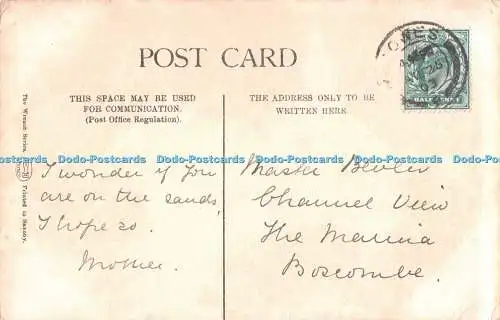 POST CARD
THIS SPACE MAY BE USED
FOR COMMUNICATION.
(Post Office Regulation).
THE ADDRESS ONLY TO BE
WRITTEN HERE.
HALFPENNY
The Wrench Series, Printed in Saxony
Dodo-Postcards Dodo-Postcards Dodo-Postcards Dodo-Postcards Dodo-Postcards
I wonder if you
are on the sands,
I hope so.
Mother.
Master
Channel View
The Marina
Boscombe.